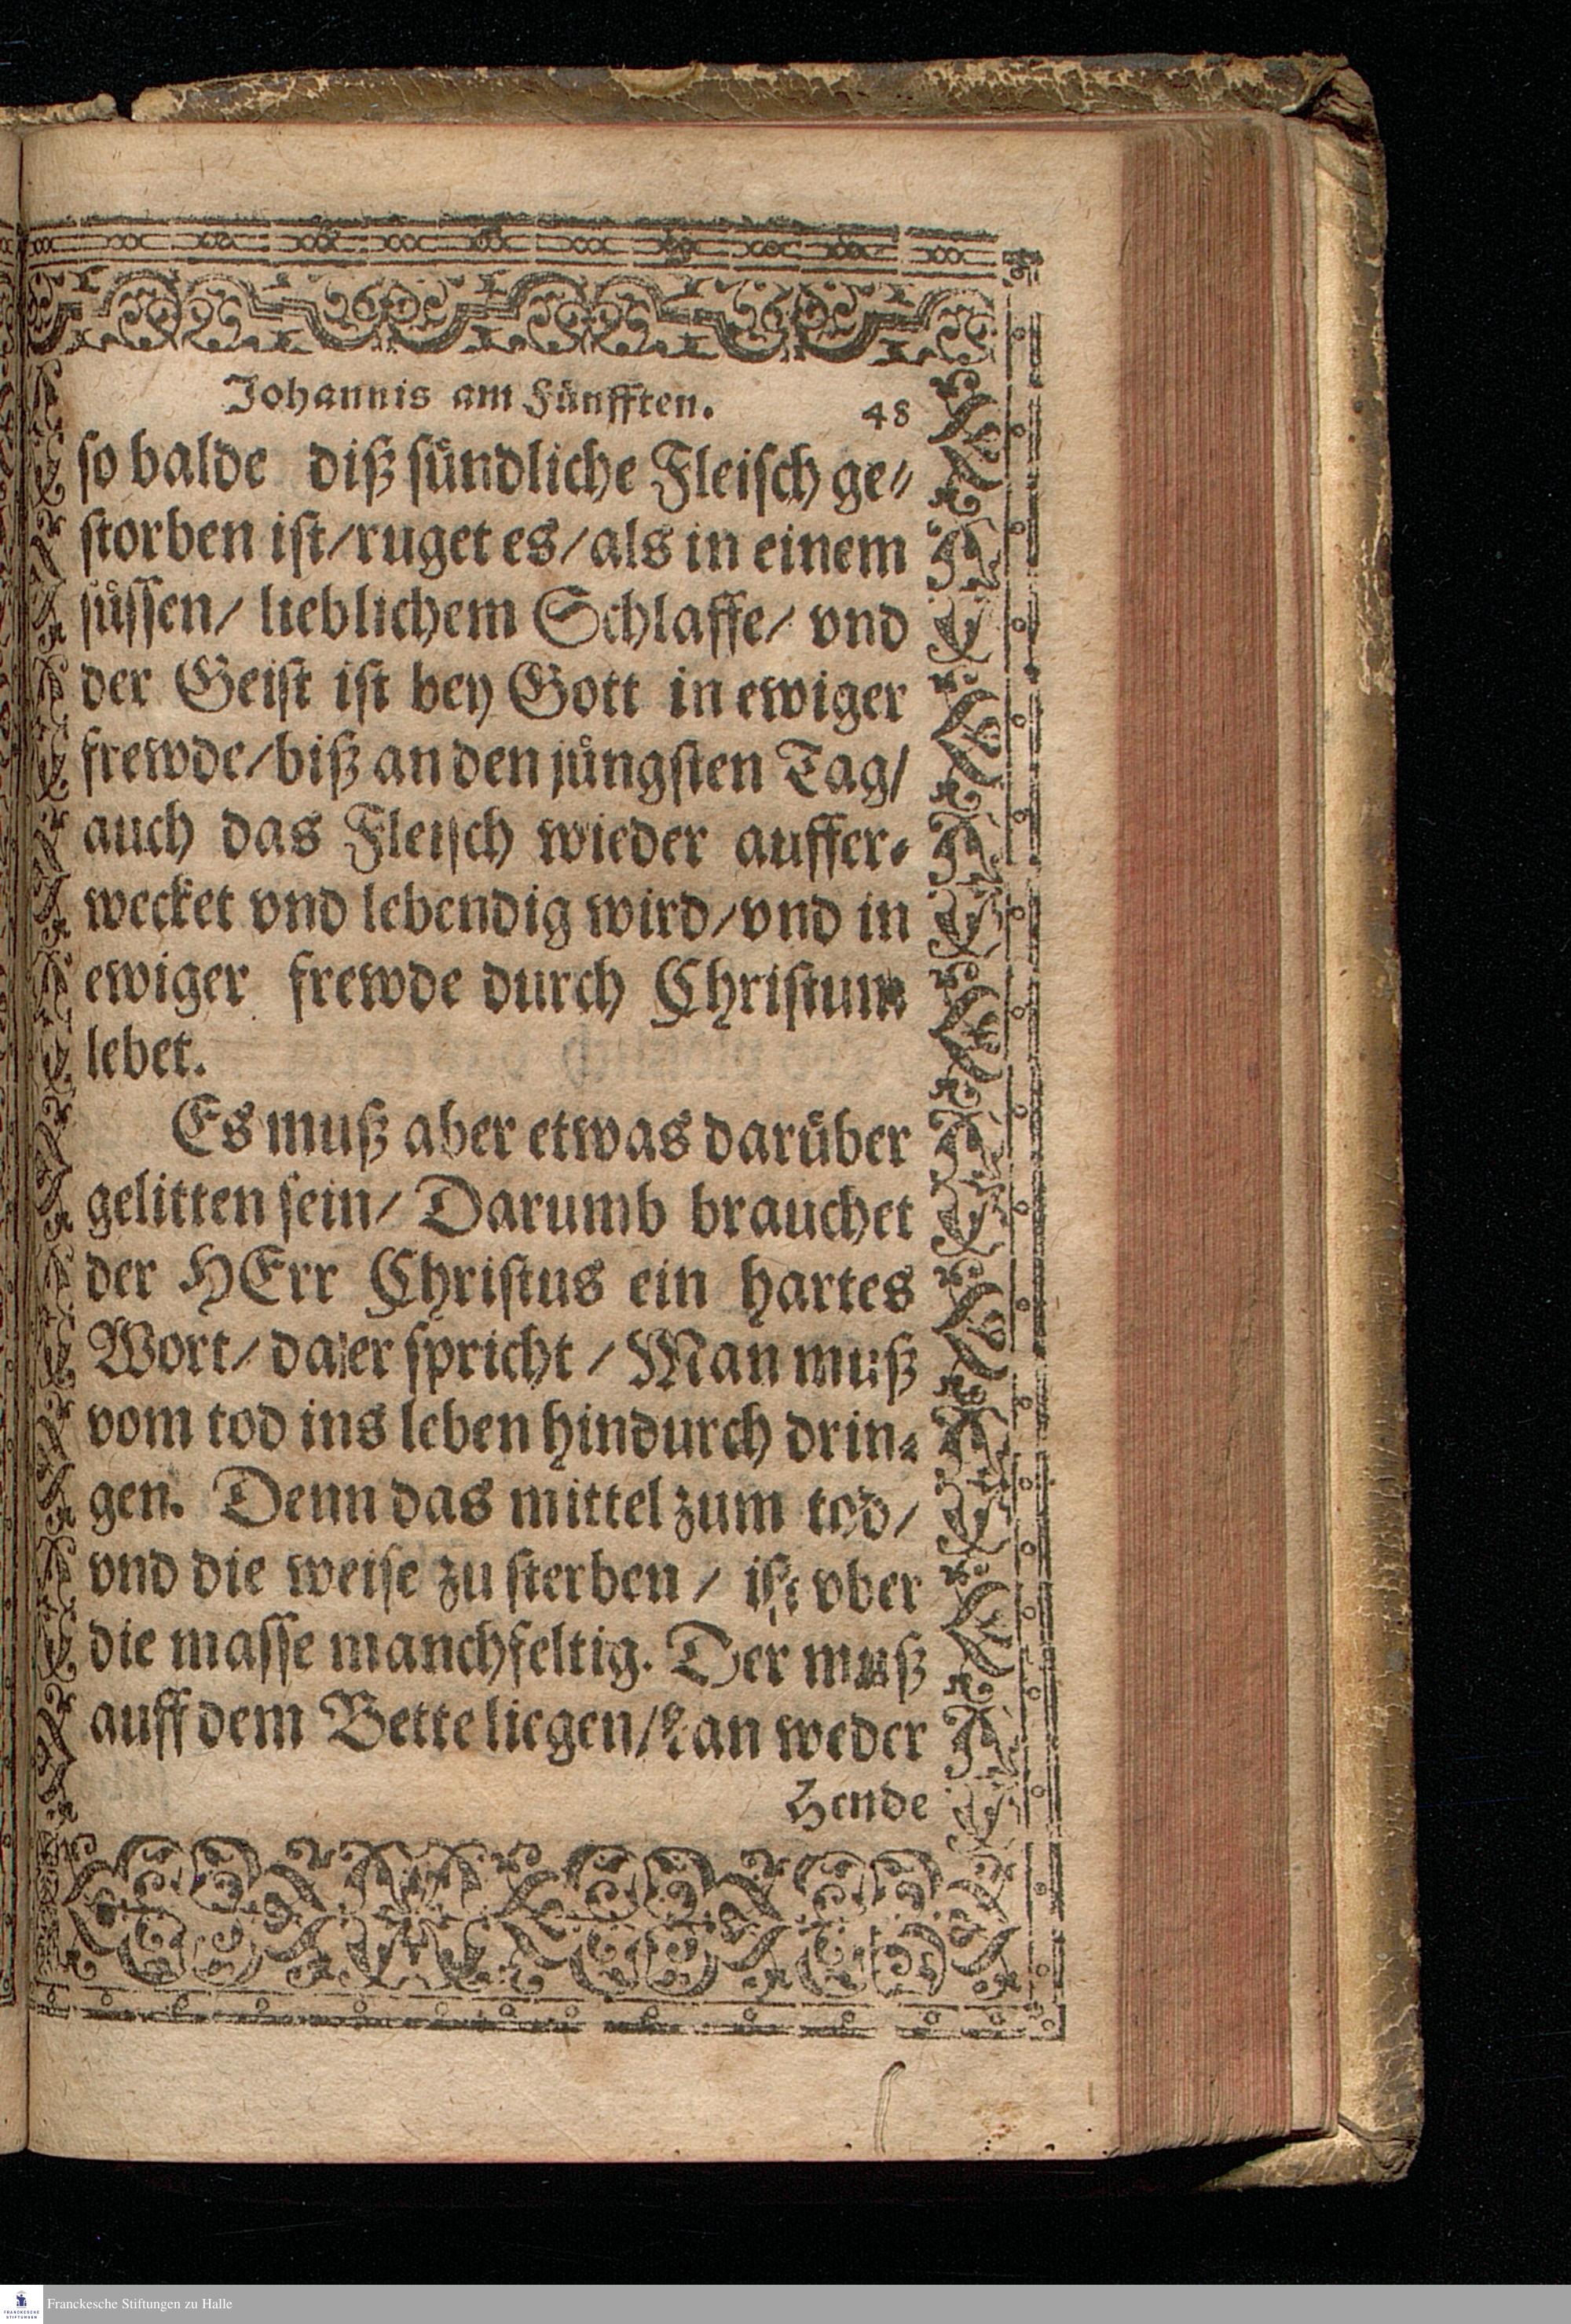 Johannis am Fünfften. 48
so balde diß sündliche Fleisch ge⸗
storben ist/ruget es/als in einem
süssen/ lieblichem Schlaffe/ vnd
der Geist ist bey Gott in ewiger
frewde/biß an den jüngsten Tag/
auch das Fleisch wieder auffer⸗
wecket vnd lebendig wird/vnd in
ewiger frewde durch Christum
lebet.
Es muß aber etwas darüber
gelitten sein/ Darumb brauchet
der HErr Christus ein hartes
Wort/ da er spricht / Man muß
vom tod ins leben hindurch drin⸗
gen. Denn das mittel zum tod/
vnd die weise zu sterben / ist vber
die masse manchfeltig. Der muß
auff dem Bette liegen/kan weder
Hende
Franckesche Stiftungen zu Halle
FRANCKESCHE
STIFTUNGEN